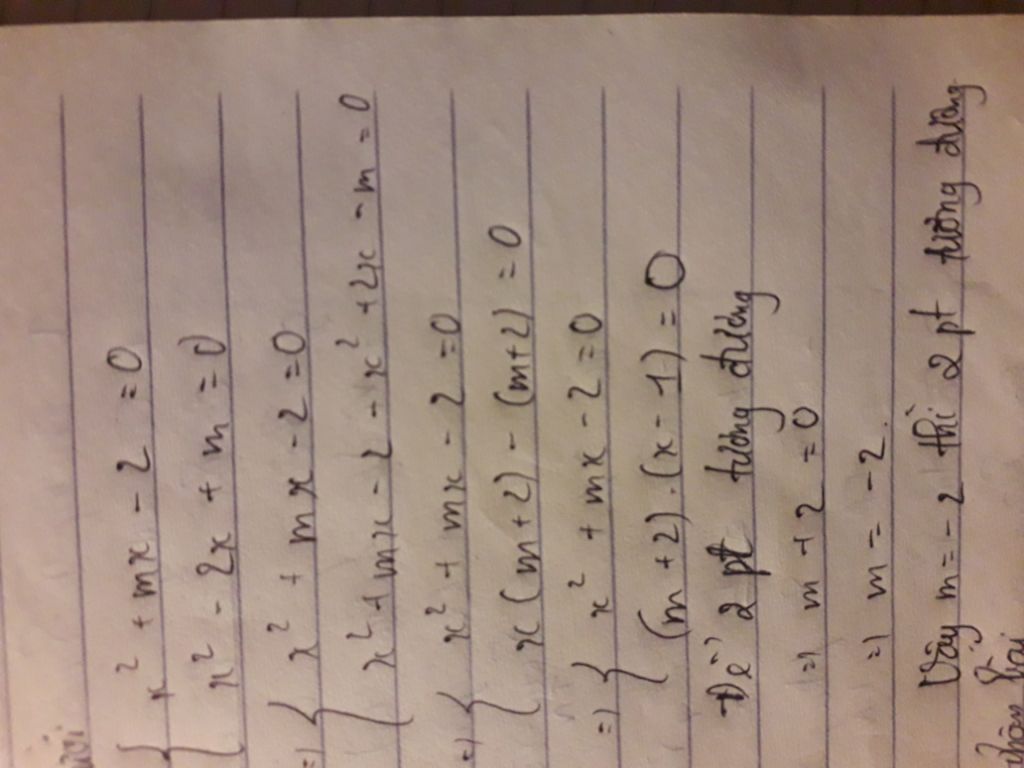 { x² + mx - 2 = 0
x² - 2x + m = 0
=) { x² + mx - 2 = 0
x² + mx - 2 - x² + 2x - m = 0
=) { x² + mx - 2 = 0
x (m+2) - (m+2) = 0
=) { x² + mx - 2 = 0
(m+2).(x-1) = 0
Để 2 pt tương đương
=) m + 2 = 0
=) m = -2.
Vậy m = -2 thì 2 pt tương đương